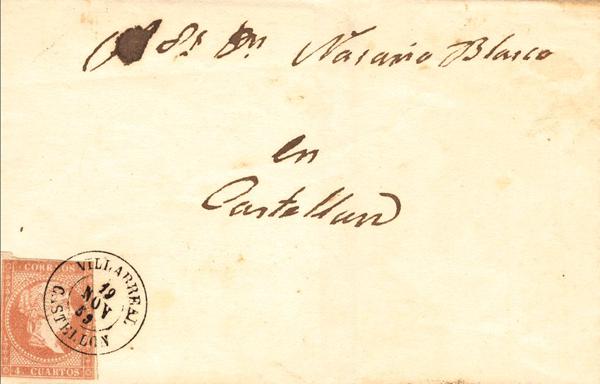 Al Sr Dn Nasario Blasco
en
Castellon
CORREOS
VILLARREAL
19
NOV
59
CASTELLON
4 CUARTOS